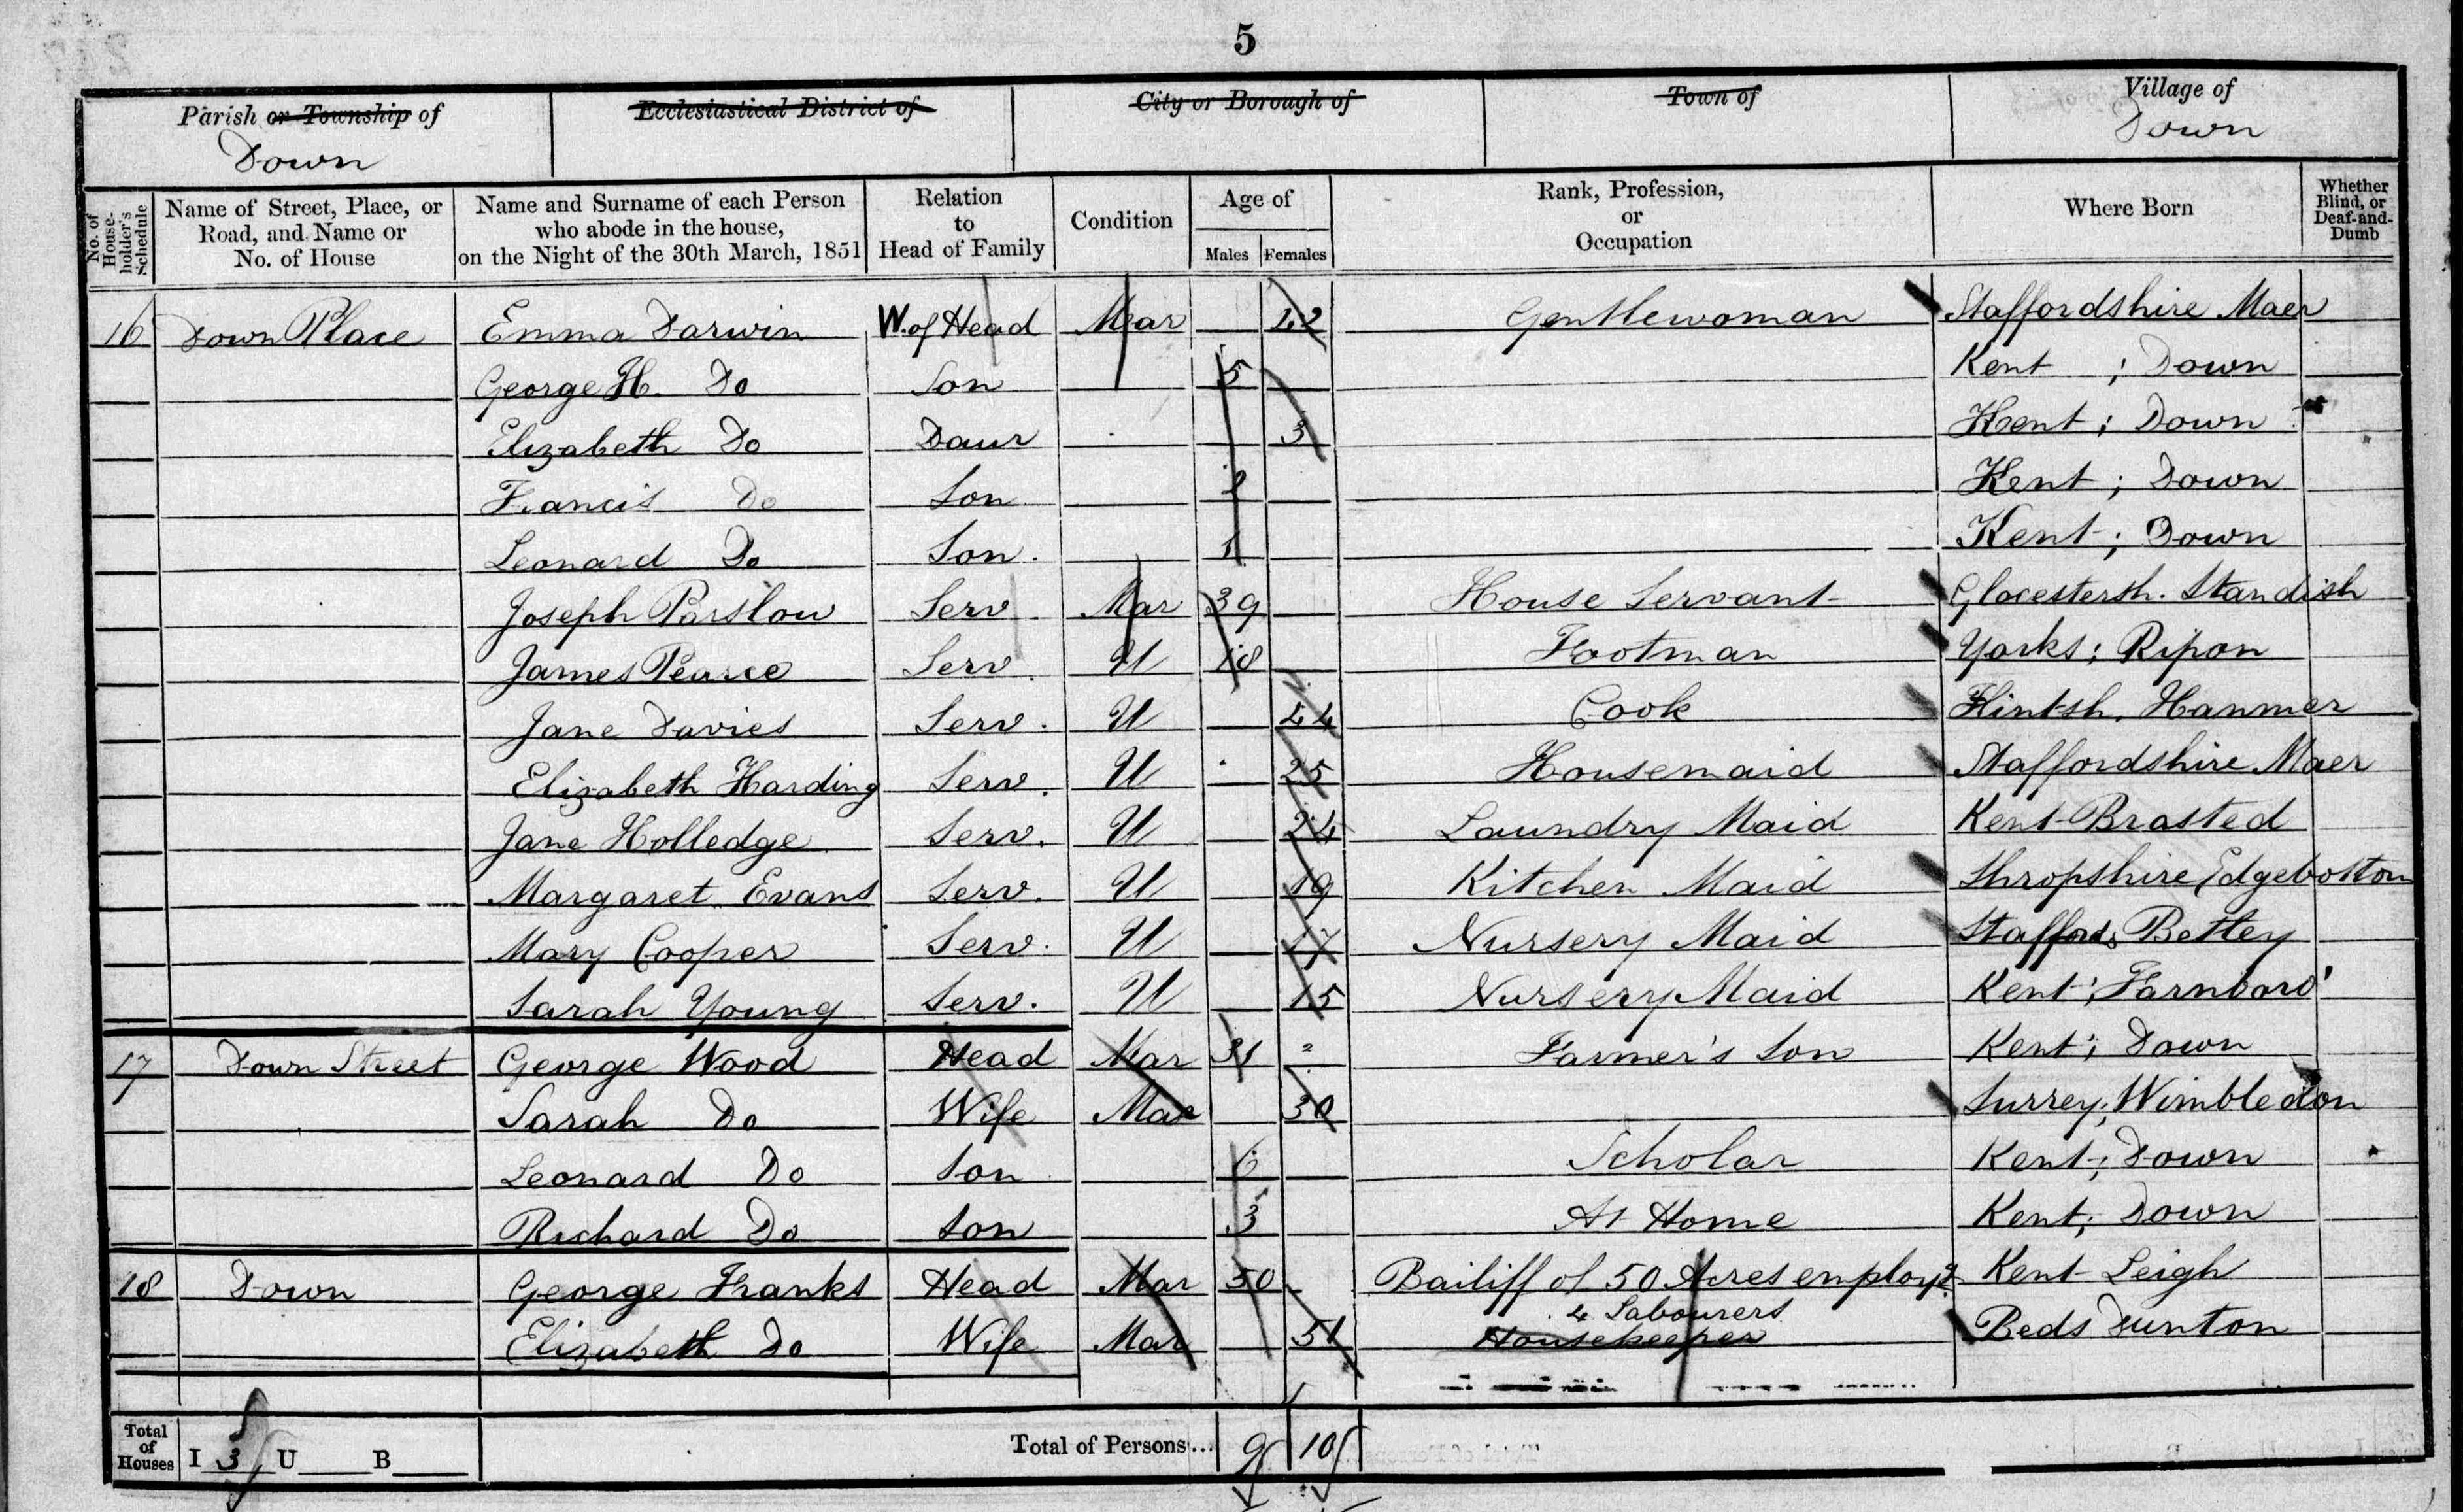 5
Parish or Township of Ecclesiastical District of City or Borough of Town of Village of
Down Down
No. of House-holder's Schedule Name of Street, Place, or Road, and Name or No. of House Name and Surname of each Person who abode in the house, on the Night of the 30th March, 1851 Relation to Head of Family Condition Age of Males Females Rank, Profession, or Occupation Where Born Whether Blind, or Deaf-and-Dumb
16 Down Place Emma Darwin W. of Head Mar 42 Gentlewoman Staffordshire Maer
George H. Do Son 5 Kent ; Down
Elizabeth Do Daur 3 Kent ; Down
Francis Do Son 2 Kent ; Down
Leonard Do Son. 1 Kent ; Down
Joseph Parslow Serv Mar 39 House Servant Glocestersh. Standish
James Pearce Serv. U 18 Footman Yorks ; Ripon
Jane Davies Serv. U 44 Cook Flintsh. Hanmer
Elizabeth Harding Serv. U 25 Housemaid Staffordshire Maer
Jane Holledge Serv. U 24 Laundry Maid Kent Brasted
Margaret Evans Serv. U 19 Kitchen Maid Shropshire Edgebottom
Mary Cooper Serv. U 17 Nursery Maid Staffords Betley
Sarah Young Serv. U 15 Nursery Maid Kent ; Farnboro'
17 Down Street George Wood Head Mar 31 Farmer's Son Kent ; Down
Sarah Do Wife Mar 30 Surrey ; Wimbledon
Leonard Do Son 6 Scholar Kent ; Down
Richard Do Son 3 At Home Kent ; Down
18 Down George Franks Head Mar 50 Bailiff of 50 Acres employg Kent Leigh
4 Labourers
Elizabeth Do Wife Mar 51 Housekeeper Beds Dunton
Total of Houses I 3 U B Total of Persons... 9 10